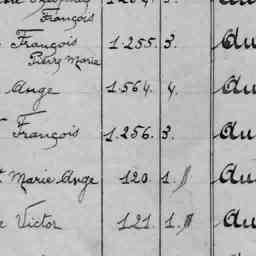 François
François 1.255. 3. Au
Pierre Marie
Ange 1.564. 4. Au
François 1.256. 3. Au
Marie Ange 120. 1. Au
Victor 121. 1. Au